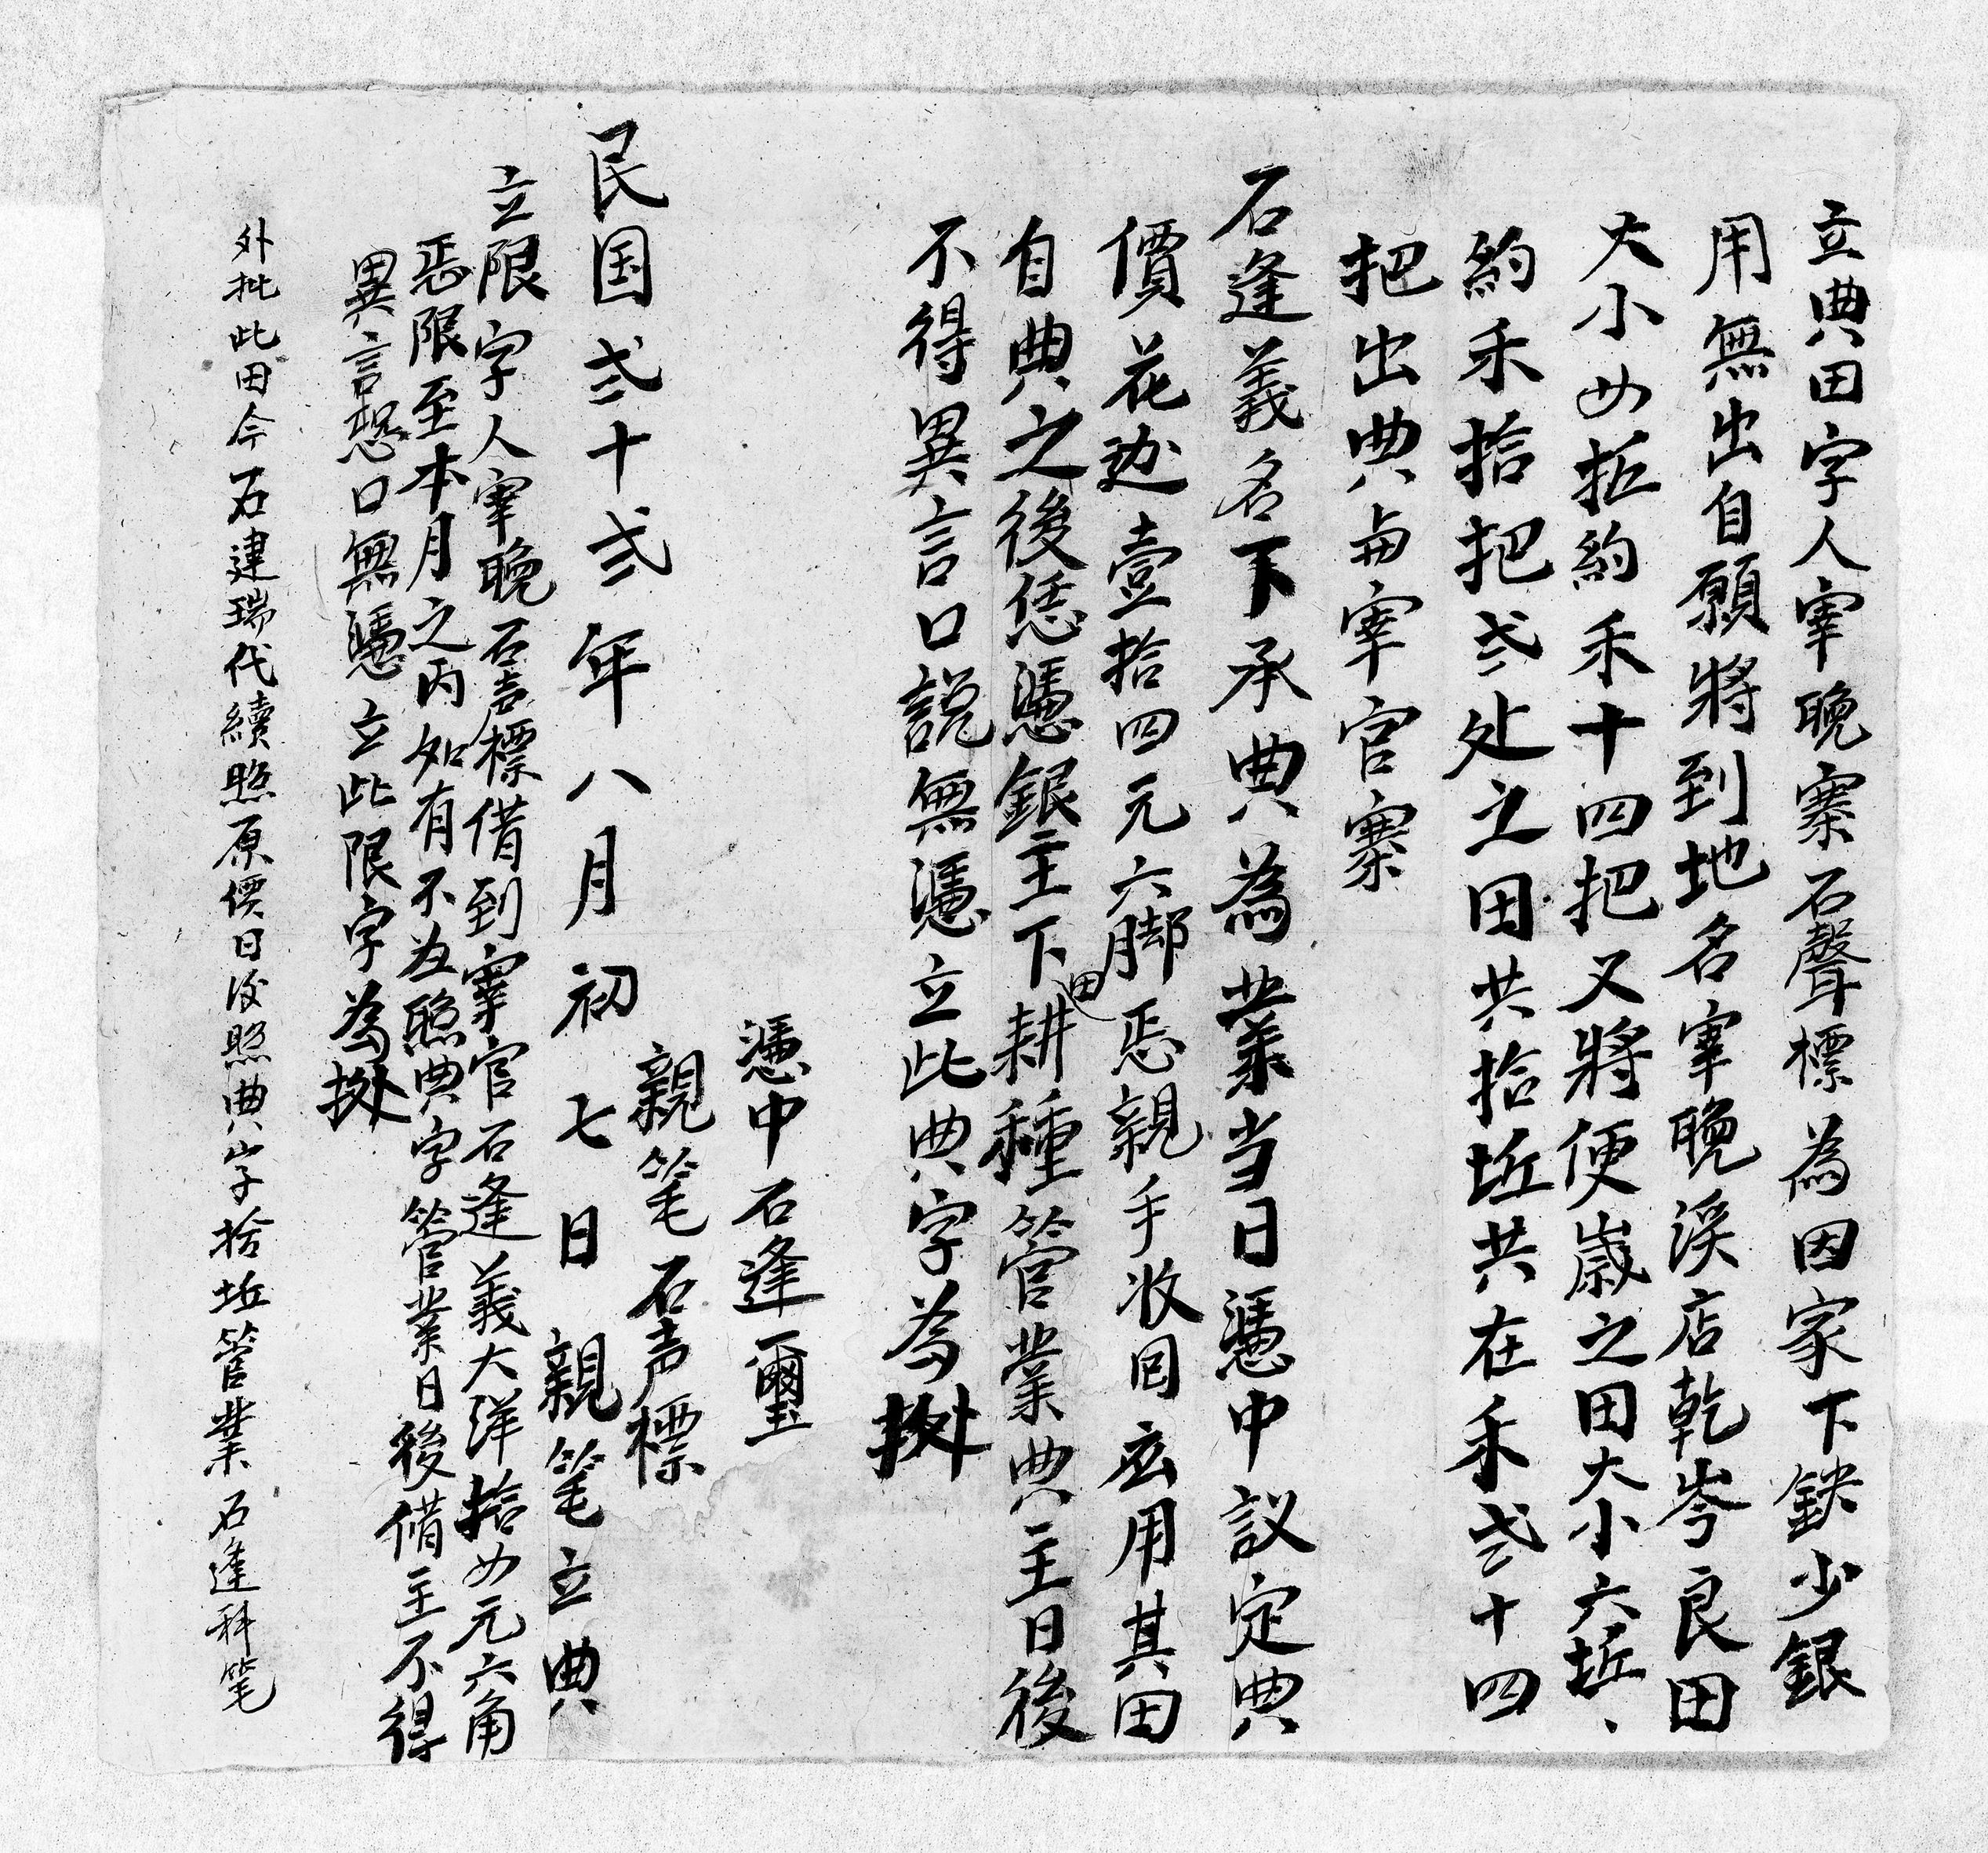 立典田字人宰晚寨石聲標為因家下缺少銀
用無出自願將到地名宰晚溪店乾岑良田
大小四坵約禾十四把又將便歲之田大小六坵、
約禾拾把弍处之田共拾坵共在禾弍十四
把出典与宰官寨
石逢義名下承典為业業当日憑中議定典
價花边壹拾四元六脚恁親手收囬应用其田
自典之後恁憑銀主下田耕種管業典主日後
不得異言口說無憑立此典字為拠
憑中石逢璽
親笔石声標
民国弍十弍年八月初七日親笔立典
立限字人宰晚石声標借到宰官石逢義大洋拾四元六角
恁限至本月之内如有不为照典字管業日後借主不得
異言恐口無憑立此限字為拠
外批此田今石建瑞代續照原價日後照典字拾坵管業石逢科笔